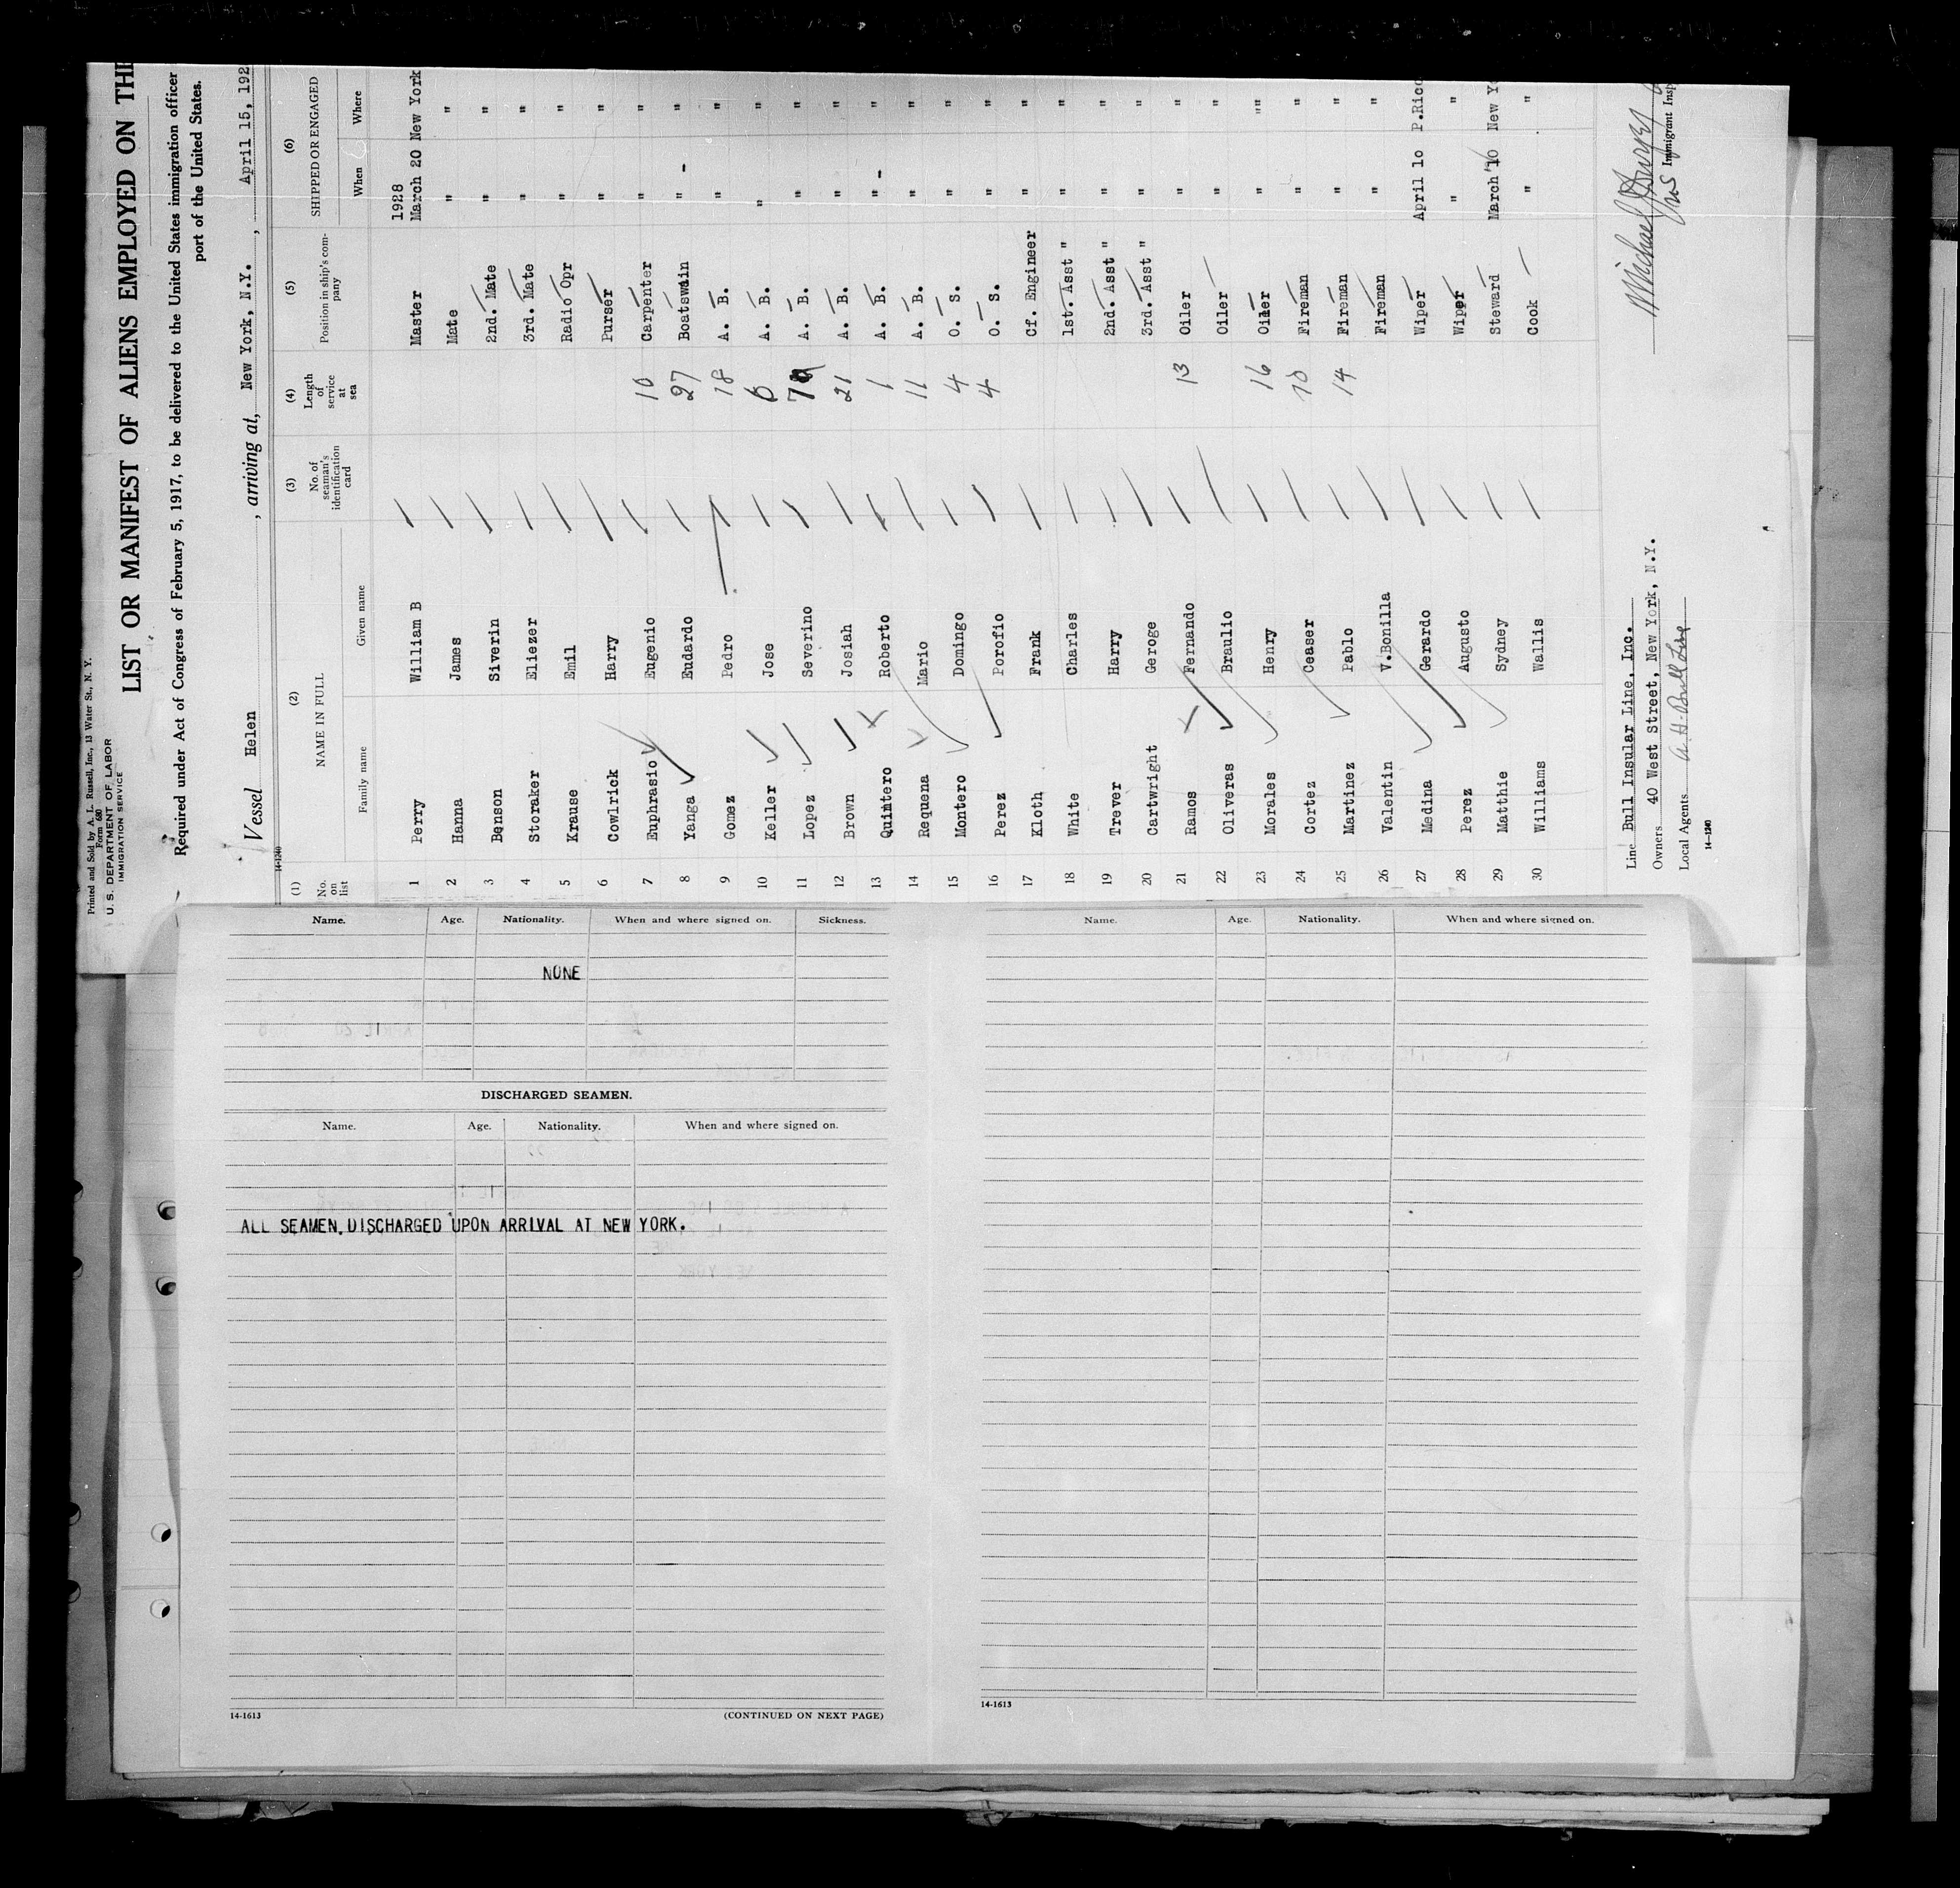 Printed and Sold by A. L. Russell, Inc., 13 Water St., N. Y.
Form 680
U. S. DEPARTMENT OF LABOR
IMMIGRATION SERVICE
LIST OR MANIFEST OF ALIENS EMPLOYED ON THE
Required under Act of Congress of February 5, 1917, to be delivered to the United States immigration officer
port of the United States.
Vessel Helen , arriving at, New York, N.Y. , April 15, 192
14-1240
(1) No. on list (2) NAME IN FULL Family name Given name (3) No. of seaman's identification card (4) Length of service at sea (5) Position in ship's company (6) SHIPPED OR ENGAGED When Where
1928
1 Perry William B Master March 20 New York
2 Hanna James Mate " "
3 Benson Siverin 2nd. Mate " "
4 Storaker Eliezer 3rd. Mate " "
5 Krause Emil Radio Opr " "
6 Cowlrick Harry Purser " "
7 Euphrasio Eugenio 10 Carpenter " "
8 Yanga Eudardo 27 Boatswain " - "
9 Gomez Pedro 18 A. B. " "
10 Keller Jose A. B. " "
11 Lopez Severino A. B. " "
12 Brown Josiah 21 A. B. " "
13 Quintero Roberto 1 A. B. " - "
14 Requena Mario 11 A. B. " "
15 Montero Domingo 4 O. S. " "
16 Perez Porofio 4 O. S. " "
17 Kloth Frank Cf. Engineer " "
18 White Charles 1st. Asst " " "
19 Trever Harry 2nd. Asst " " "
20 Cartwright Geroge 3rd. Asst " " "
21 Ramos Fernando 13 Oiler " "
22 Oliveras Braulio Oiler " "
23 Morales Henry 16 Oiler " ""
24 Cortez Ceaser 10 Fireman " "
25 Martinez Pablo 14 Fireman " "
26 Valentin V.Bonilla Fireman " "
27 Medina Gerardo Wiper April 10 P.Rico
28 Perez Augusto Wiper " "
29 Matthie Sydney Steward March 10 New Yo
30 Williams Wallis Cook " "
Line Bull Insular Line, Inc.
Owners 40 West Street, New York, N.Y.
Local Agents A. H. Bull Line
14-1240
Michael
Immigrant Insp
Name. Age. Nationality. When and where signed on. Sickness.
NONE
DISCHARGED SEAMEN.
Name. Age. Nationality. When and where signed on.
ALL SEAMEN DISCHARGED UPON ARRIVAL AT NEW YORK.
14-1613
(CONTINUED ON NEXT PAGE)
Name. Age. Nationality. When and where signed on.
14-1613